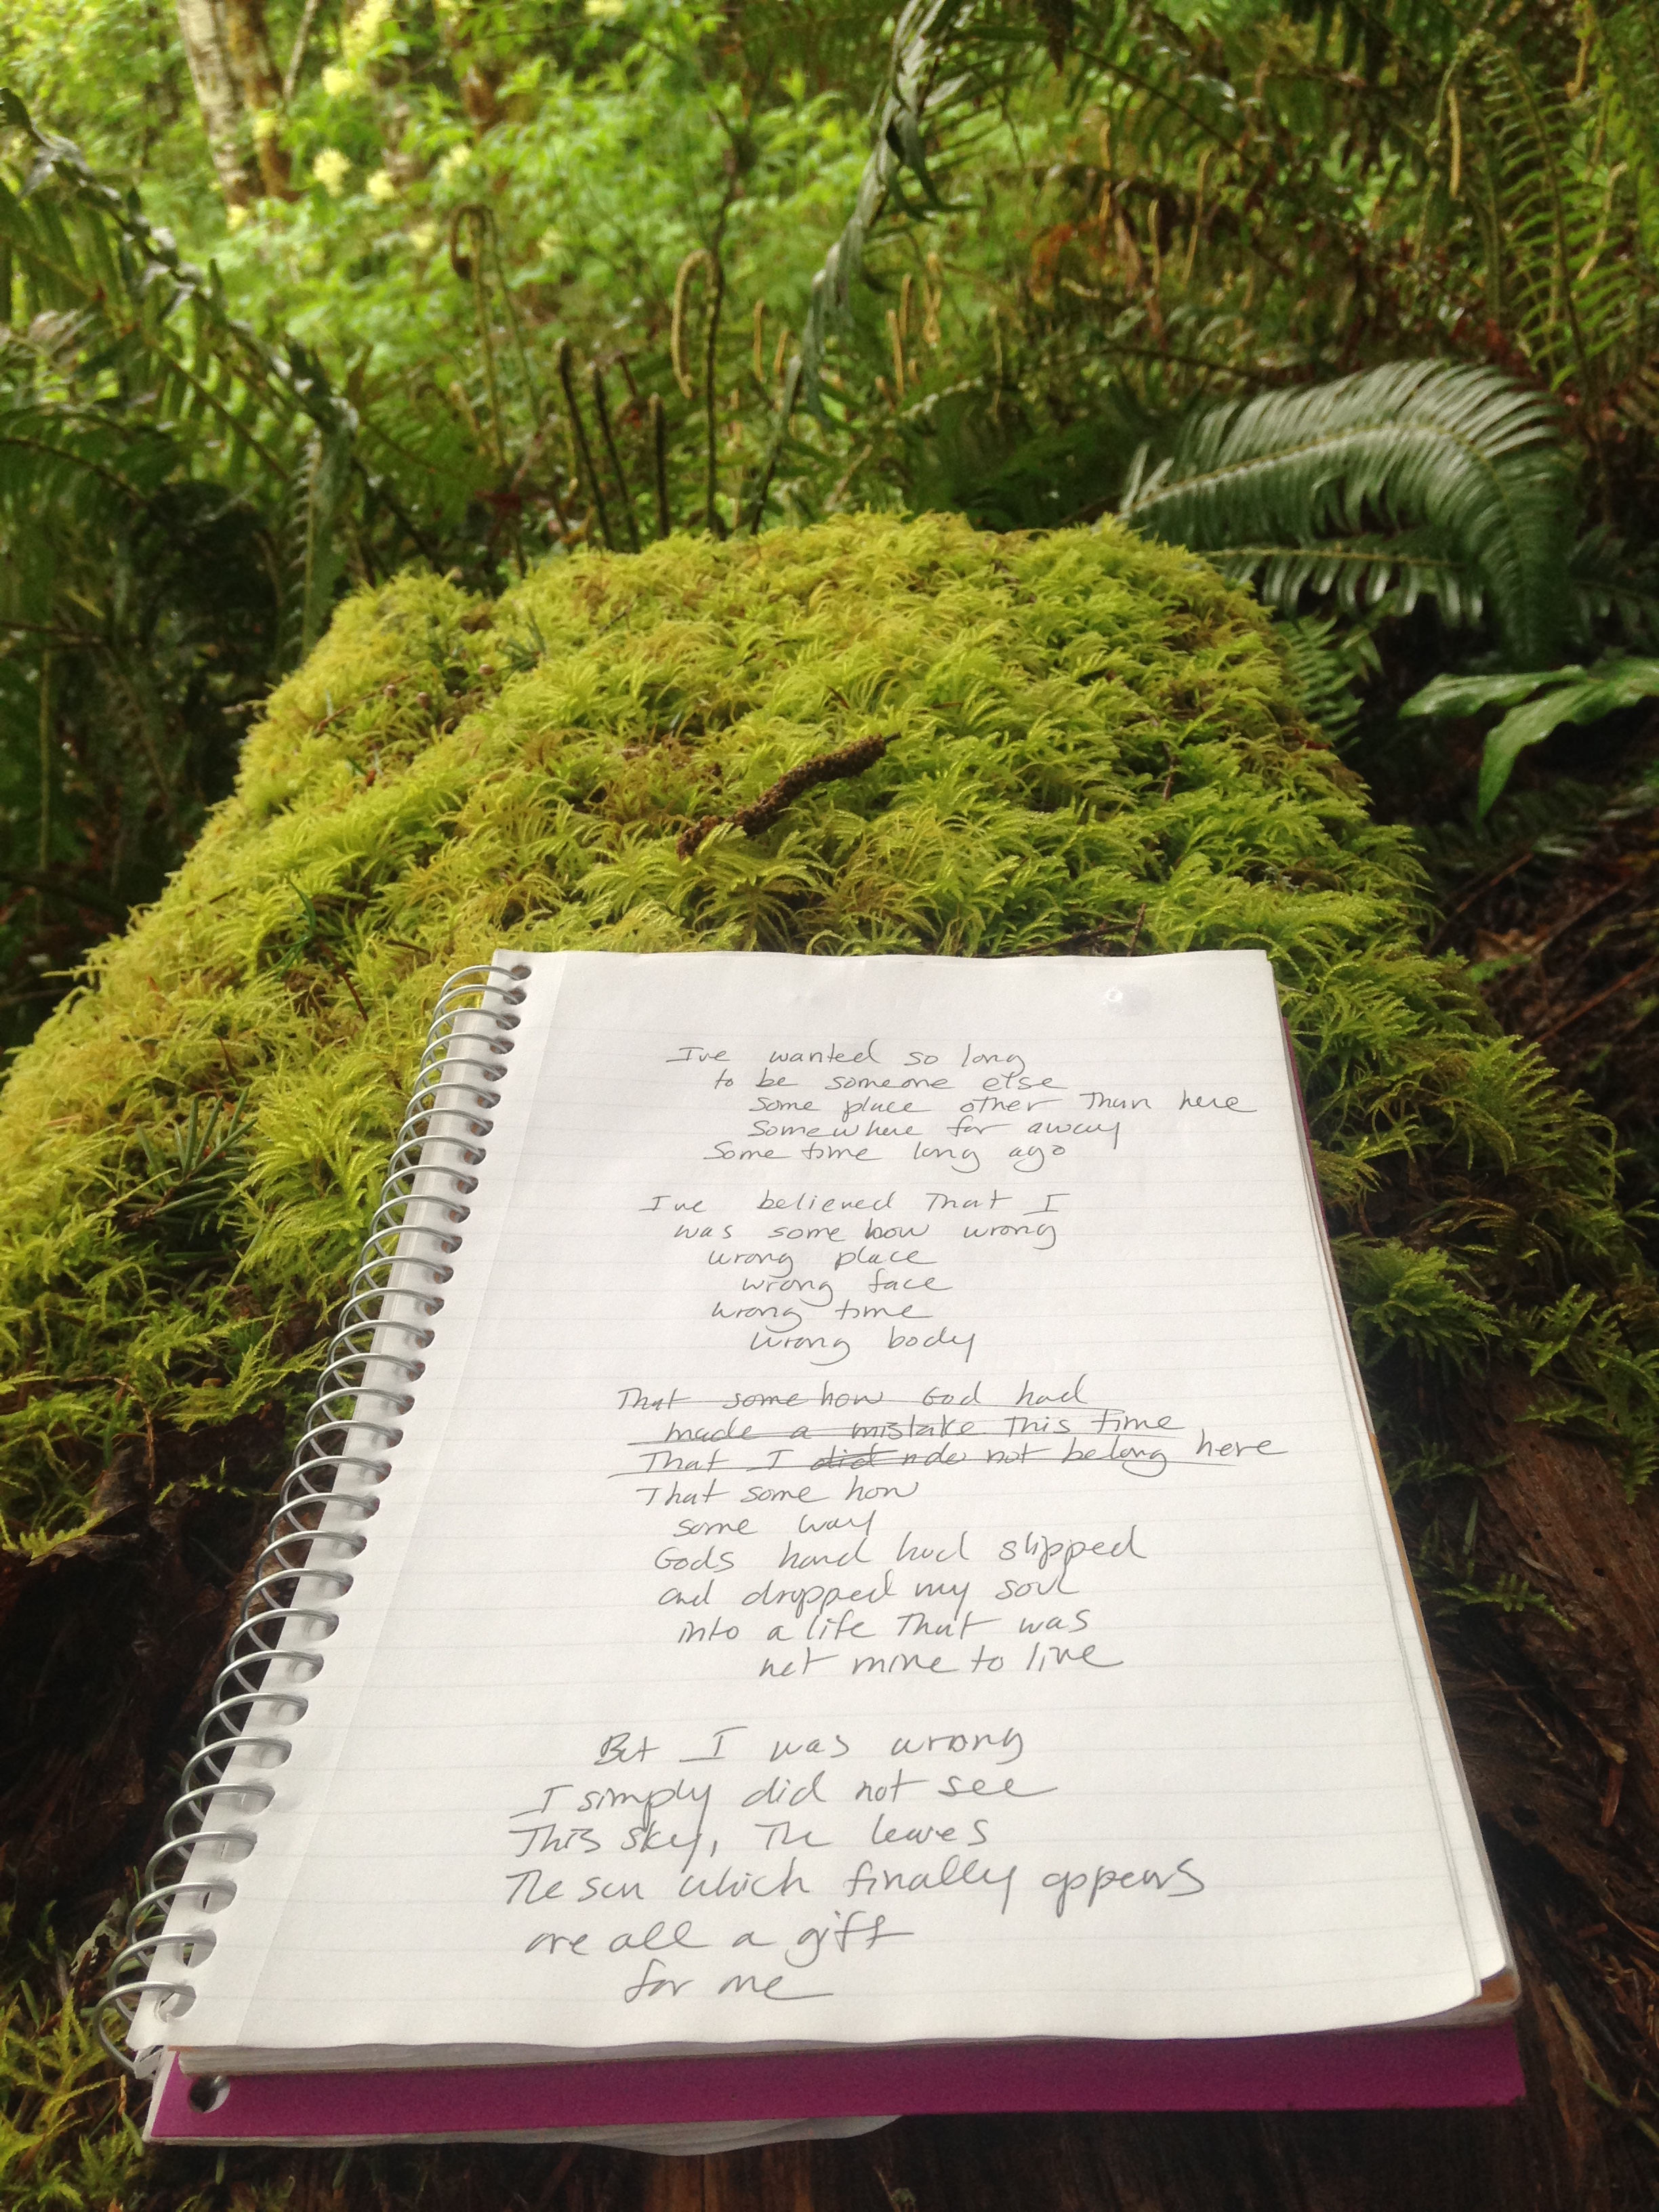 I've wanted so long
to be someone else
Some place other Than here
Somewhere far away
Some time long ago
I've believed That I
was some how wrong
wrong place
wrong face
wrong time
wrong body
That some how God had
made a mistake This time
That I did do not belong here
That some how
some way
Gods hand had slipped
and dropped my soul
into a life That was
not mine to live
But I was wrong
I simply did not see
This sky, The leaves
The sun which finally appears
are all a gift
for me